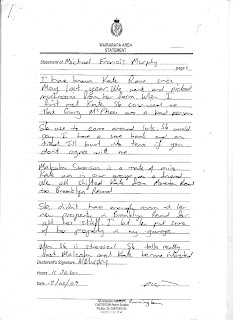 WAIRARAPA AREA
STATEMENT
Statement of Michael Francis Murphy
page 1
I have known Kate Rowe since
May last year. We went and picked
mushrooms from her farm. When I
first met Kate. She convinced me
that Gary McPhee was a bad person
She use to come around lots. She would
say I have a sore back and an
I'll burst into tears if you
don't agree with me
Malcolm Swanson is a mate of mine
Kate was in our group as a friend
We all shifted Kate from Road
to Brooklyn Road
She didn't have enough room at her
new property in Brooklyn Road for
all her stuff. I let her put some
of her property in my garage.
When She is stressed She talks really
fast. Malcolm and Kate became
Declarant's Signature MMurphy
Hours 11.20am
Date 12/02/09
CARTERTON Police Station